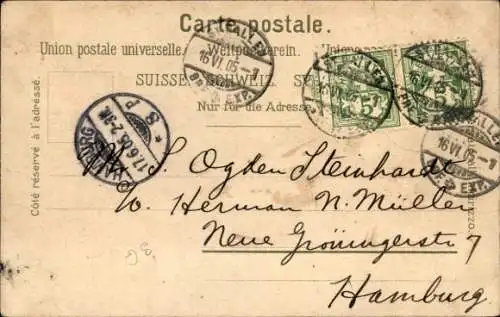 Carte postale.
Union postale universelle. Weltpostverein. Unione
SUISSE. SCHWEIZ.
Nur für die Adresse
Côté réservé à l'adresse.
16 VI. 05
BRF. EXP.
5
5
16 VI. 05
EXP.
HAMBURG
17.6.05. 2-3N.
* 8 P
S. Ogden Steinhardt
Herman N. Müller
Neue Gröningerstr 7
Hamburg